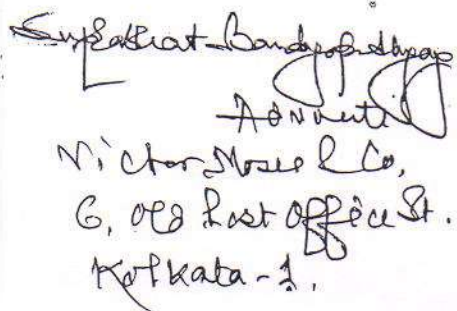 Suprabhat Bandyopadhyay
Advocate
Victor Moses & Co,
6, Old Post Office St.
Kolkata-1.